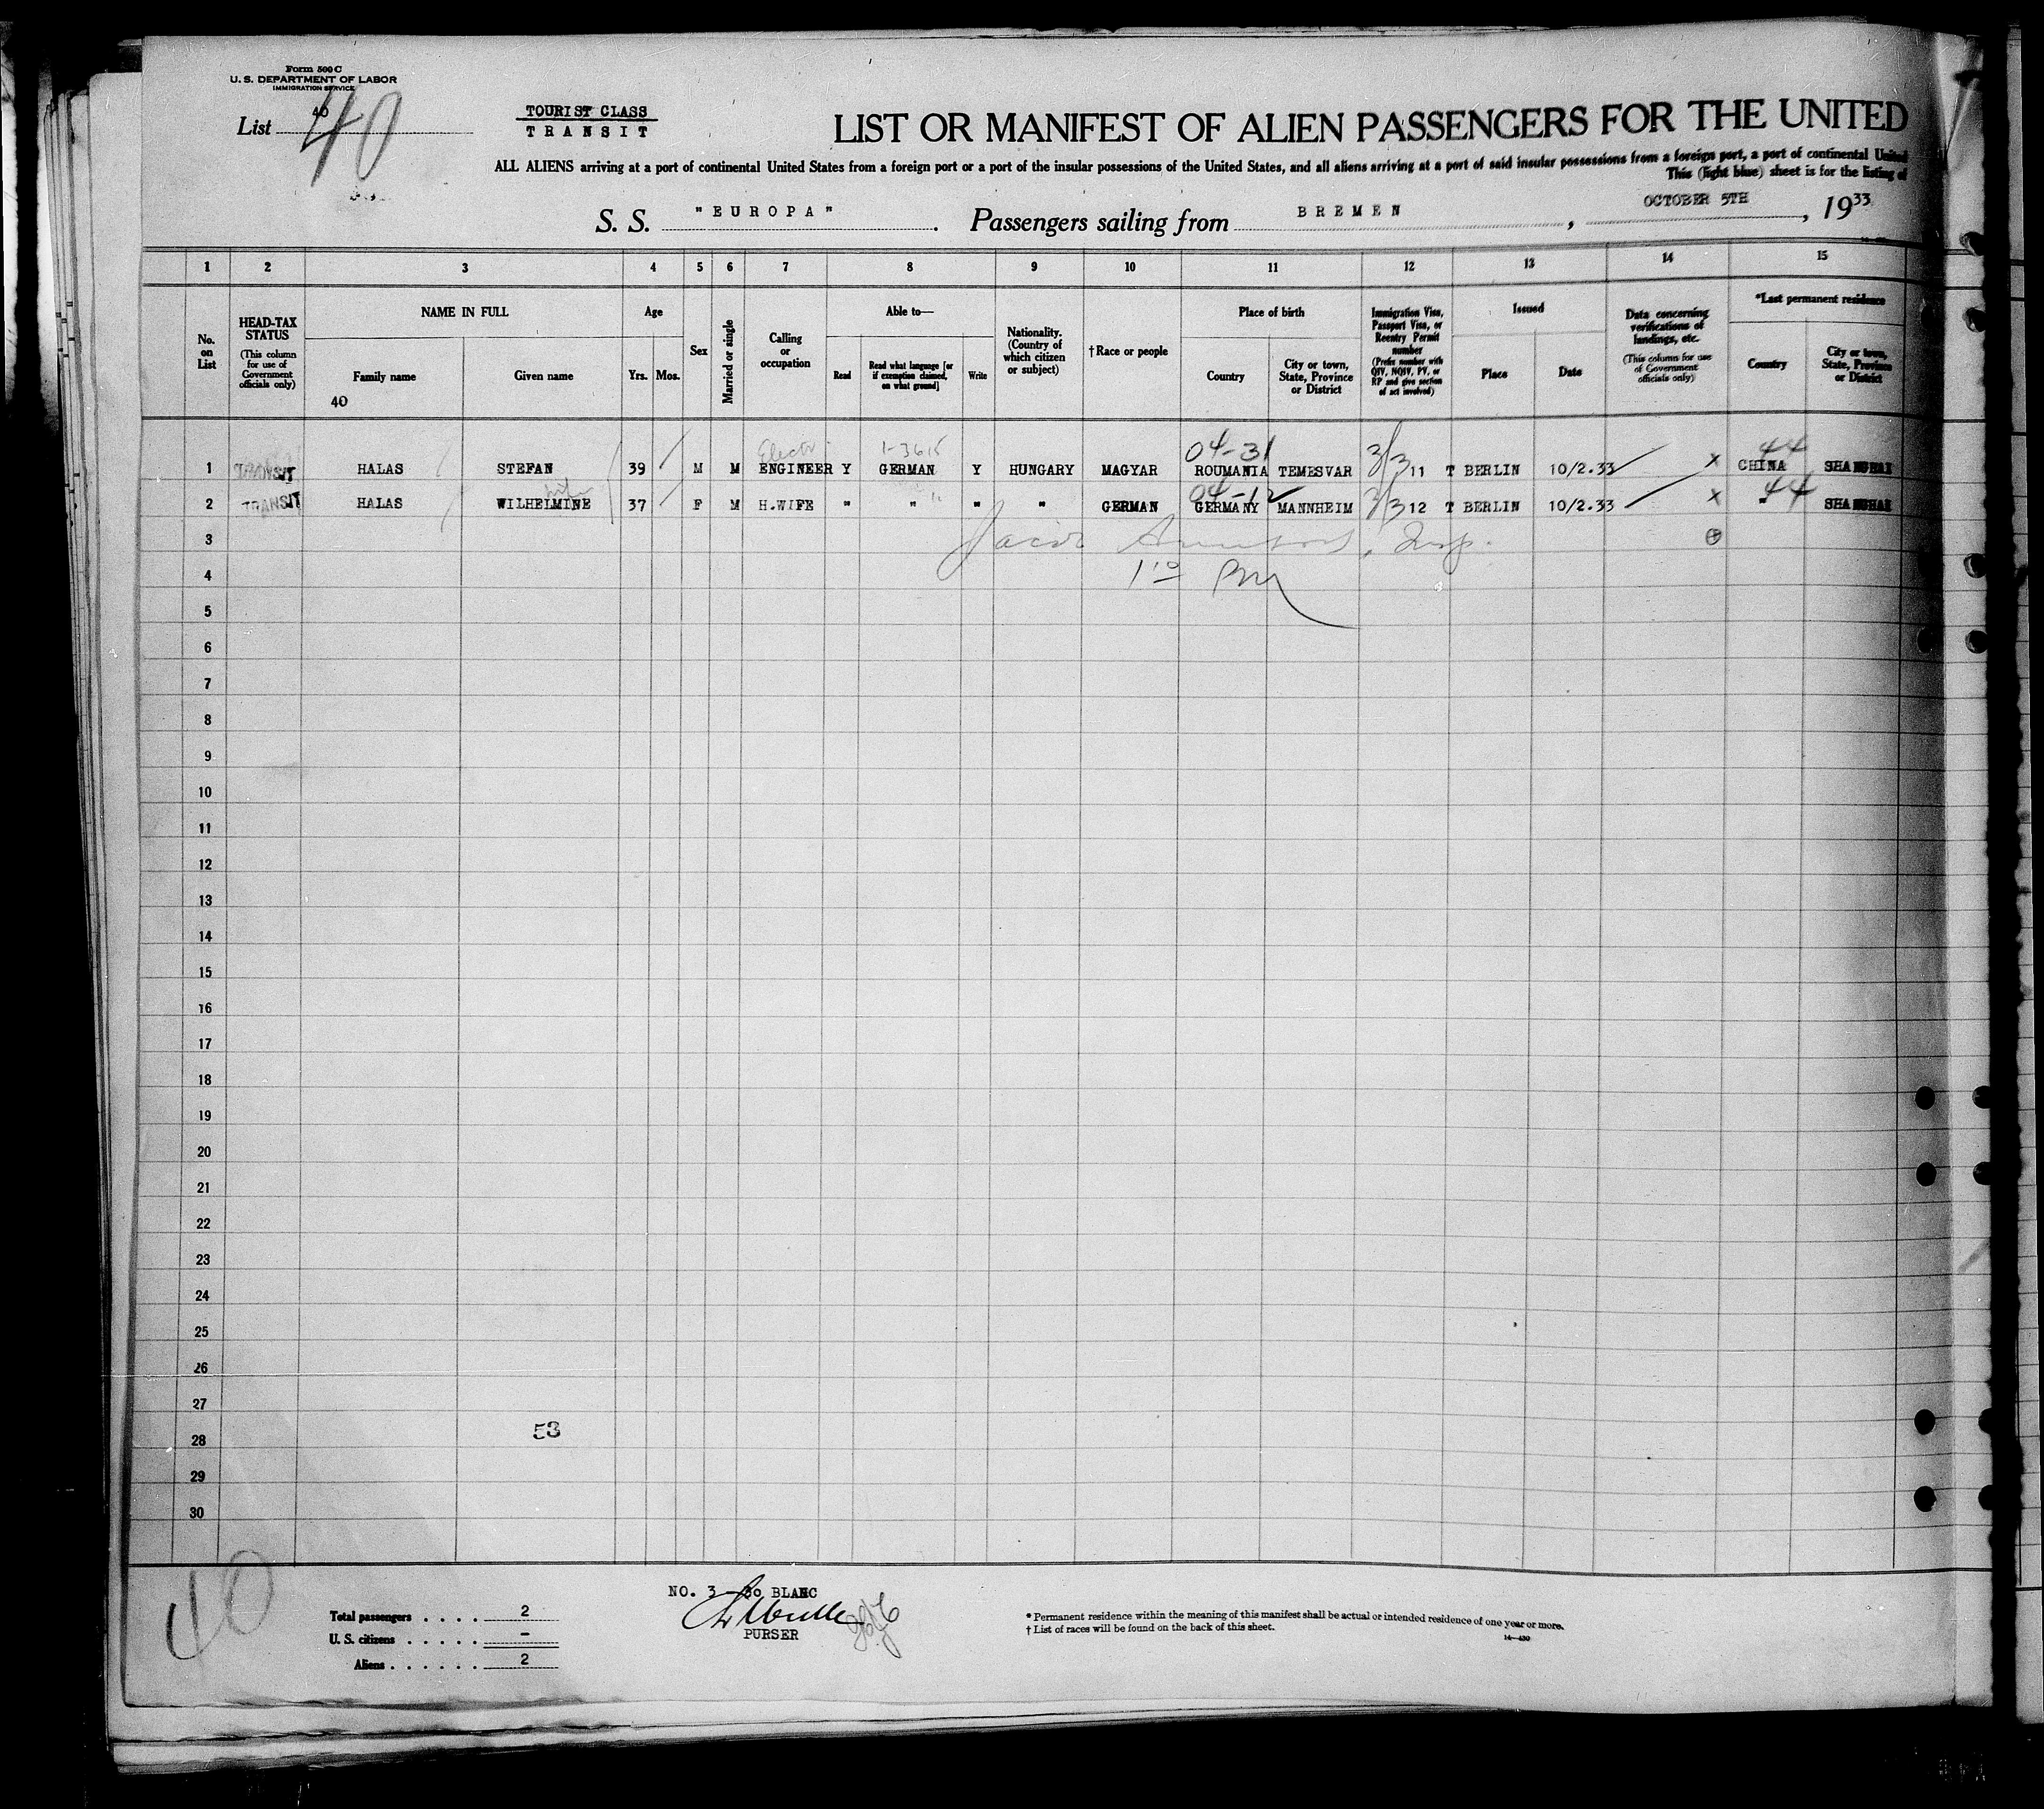 Form 500 C
U. S. DEPARTMENT OF LABOR
IMMIGRATION SERVICE
List 40
40
TOURIST CLASS
TRANSIT
LIST OR MANIFEST OF ALIEN PASSENGERS FOR THE UNITED
ALL ALIENS arriving at a port of continental United States from a foreign port or a port of the insular possessions of the United States, and all aliens arriving at a port of said insular possessions from a foreign port, a port of continental United
This (light blue) sheet is for the listing of
S. S. "EUROPA". Passengers sailing from BREMEN, OCTOBER 5TH, 1933
1 2 3 4 5 6 7 8 9 10 11 12 13 14 15
No. on List
HEAD-TAX STATUS (This column for use of Government officials only)
NAME IN FULL
Family name
Given name
40
Age
Yrs. Mos.
Sex
Married or single
Calling or occupation
Able to—
Read
Read what language [or if exemption claimed, on what ground]
Write
Nationality. (Country of which citizen or subject)
† Race or people
Place of birth
Country
City or town, State, Province or District
Immigration Visa, Passport Visa, or Reentry Permit number (Prefix number with QIV, NQIV, PV, or RP and give section of act involved)
Issued
Place
Date
Data concerning verifications of landings, etc. (This column for use of Government officials only)
*Last permanent residence
Country
City or town, State, Province or District
Electr 1-3615 04-31 44
1 TRANSIT HALAS STEFAN 39 M M ENGINEER Y GERMAN Y HUNGARY MAGYAR ROUMANIA TEMESVAR 3/3 11 T BERLIN 10/2.33 x CHINA SHANGHAI
wife 04-12 44
2 TRANSIT HALAS WILHELMINE 37 F M H.WIFE " " " " GERMAN GERMANY MANNHEIM 3/3 12 T BERLIN 10/2.33 x " SHANGHAI
3 Insp.
4 1 10 PM
5
6
7
8
9
10
11
12
13
14
15
16
17
18
19
20
21
22
23
24
25
26
27
28 53
29
30
NO. 3 - 30 BLANC
PURSER
Total passengers . . . . 2
U. S. citizens . . . . . –
Aliens . . . . . . 2
* Permanent residence within the meaning of this manifest shall be actual or intended residence of one year or more.
† List of races will be found on the back of this sheet.
14—430
40